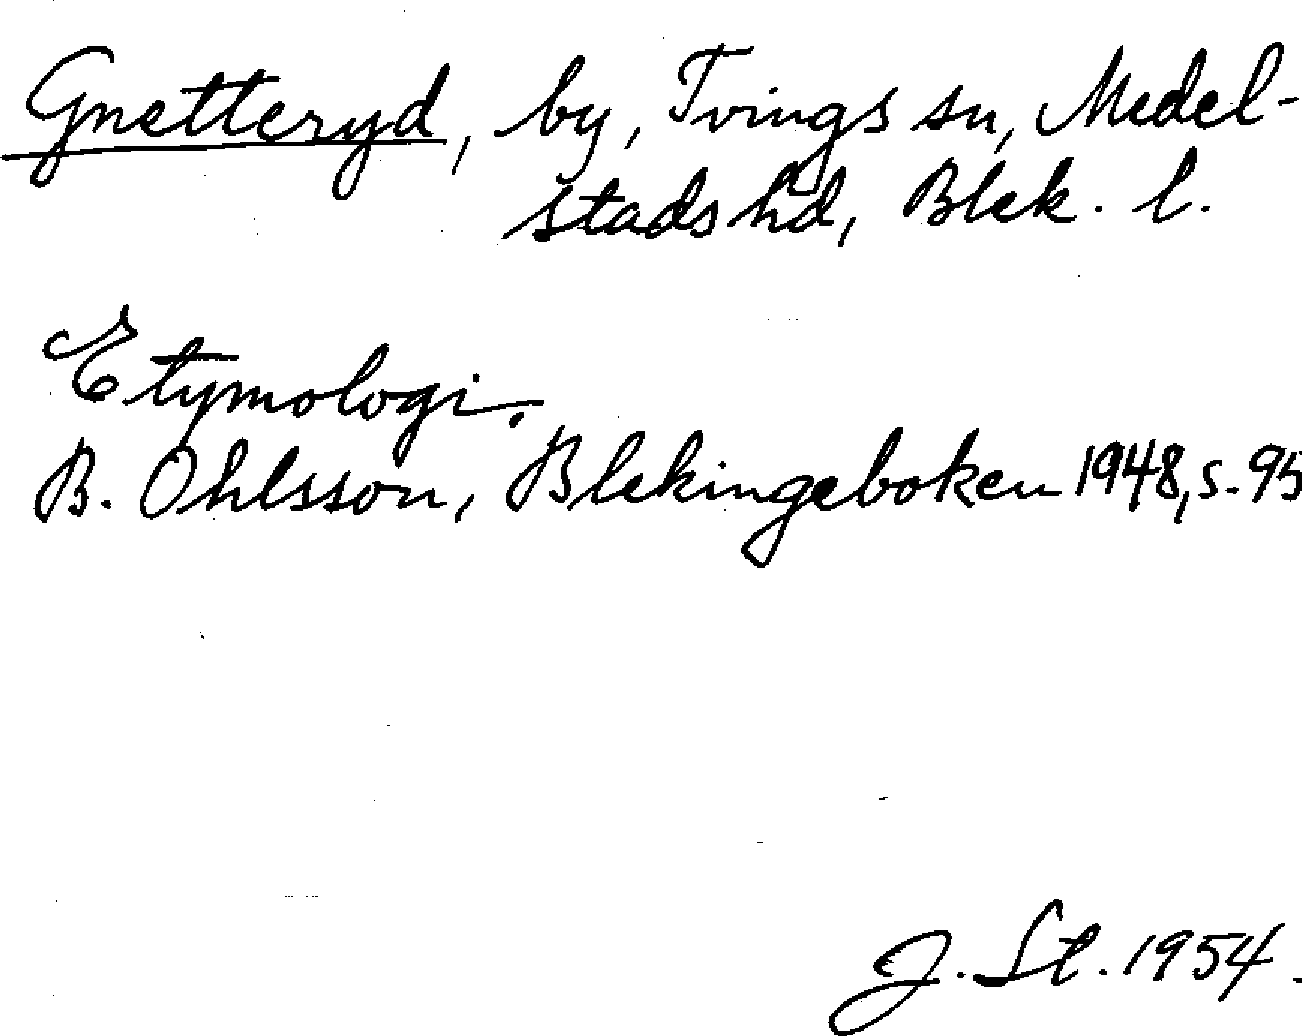 Gnetteryd, by, Tvings sn, Medel-
stads hd, Blek. l.
Etymologi.
B. Ohlsson, Blekingeboken 1948, s. 95
J. St. 1954.